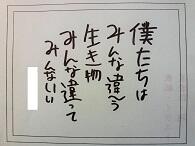 僕たちは
みんな違う
生き物
みんな違って
みんないい